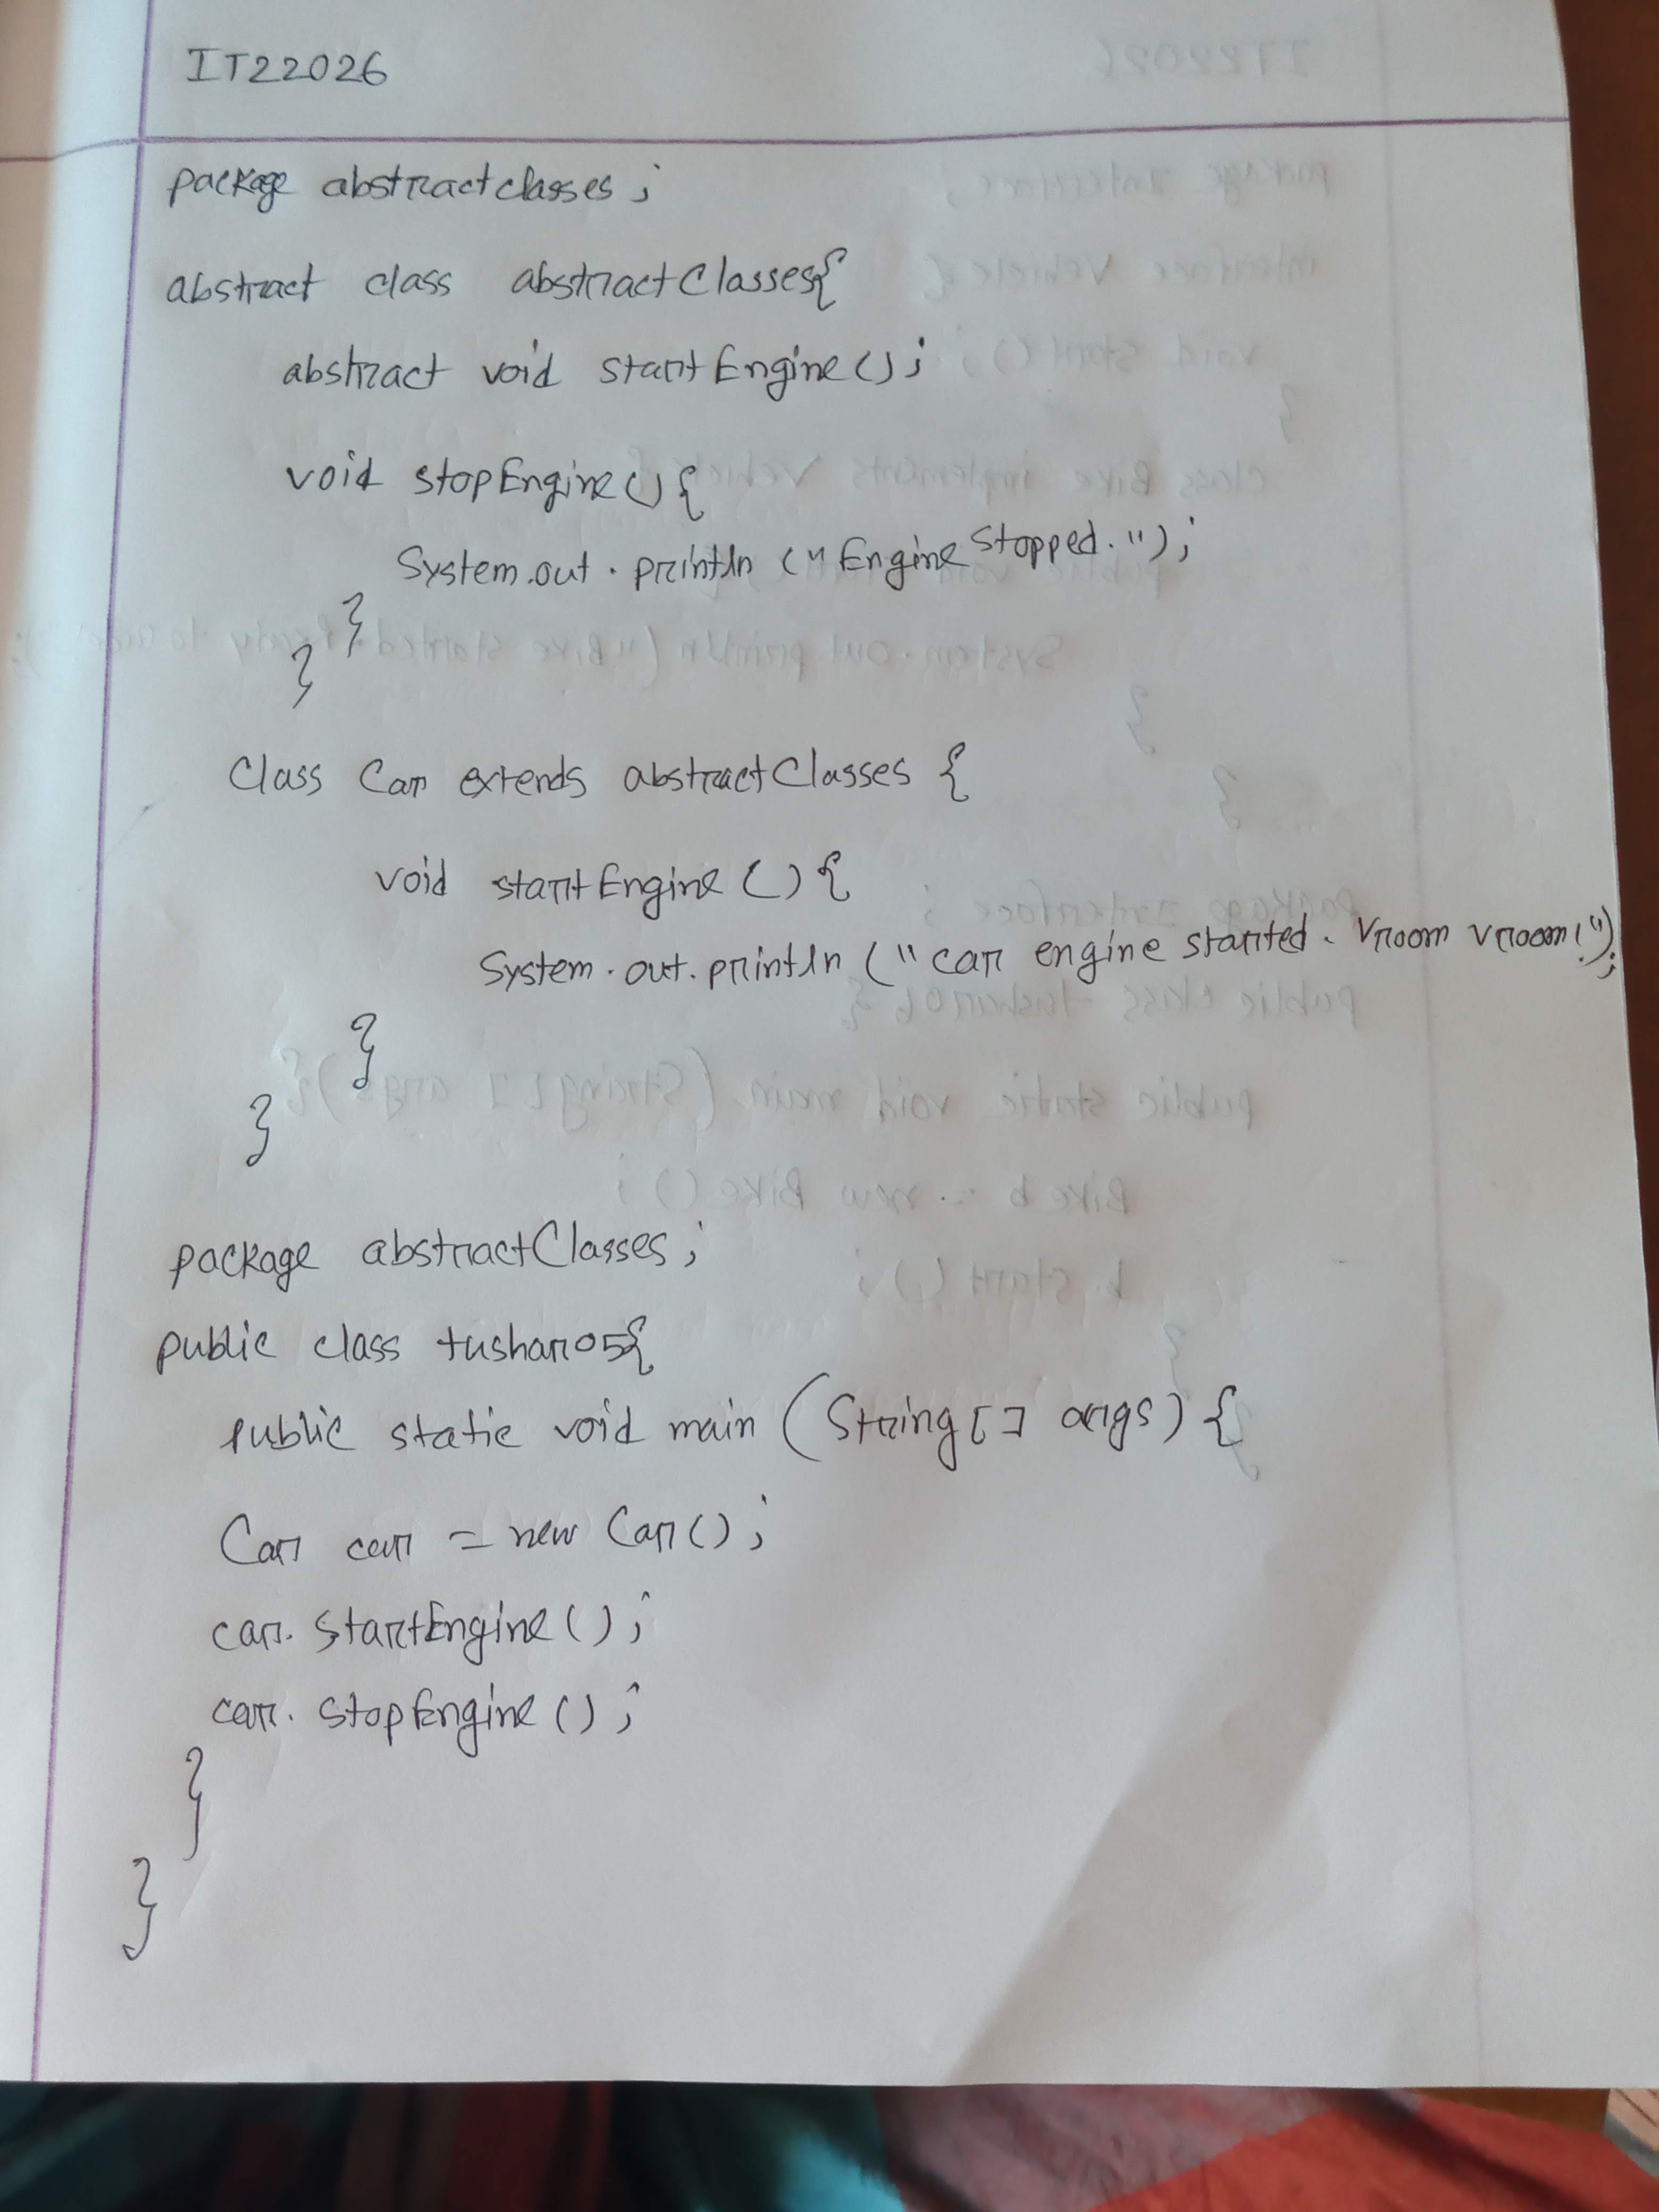 IT22026
package abstractclasses;
abstract class abstractClasses{
abstract void startEngine();
void stopEngine(){
System.out.println("Engine Stopped.");
}
}
Class Car extends abstractClasses {
void startEngine(){
System.out.println("car engine started. Vroom vroom!");
}
}
package abstractClasses;
public class tushar05{
public static void main (String[] args) {
Car car = new Car();
car.startEngine();
car.stopEngine();
}
}